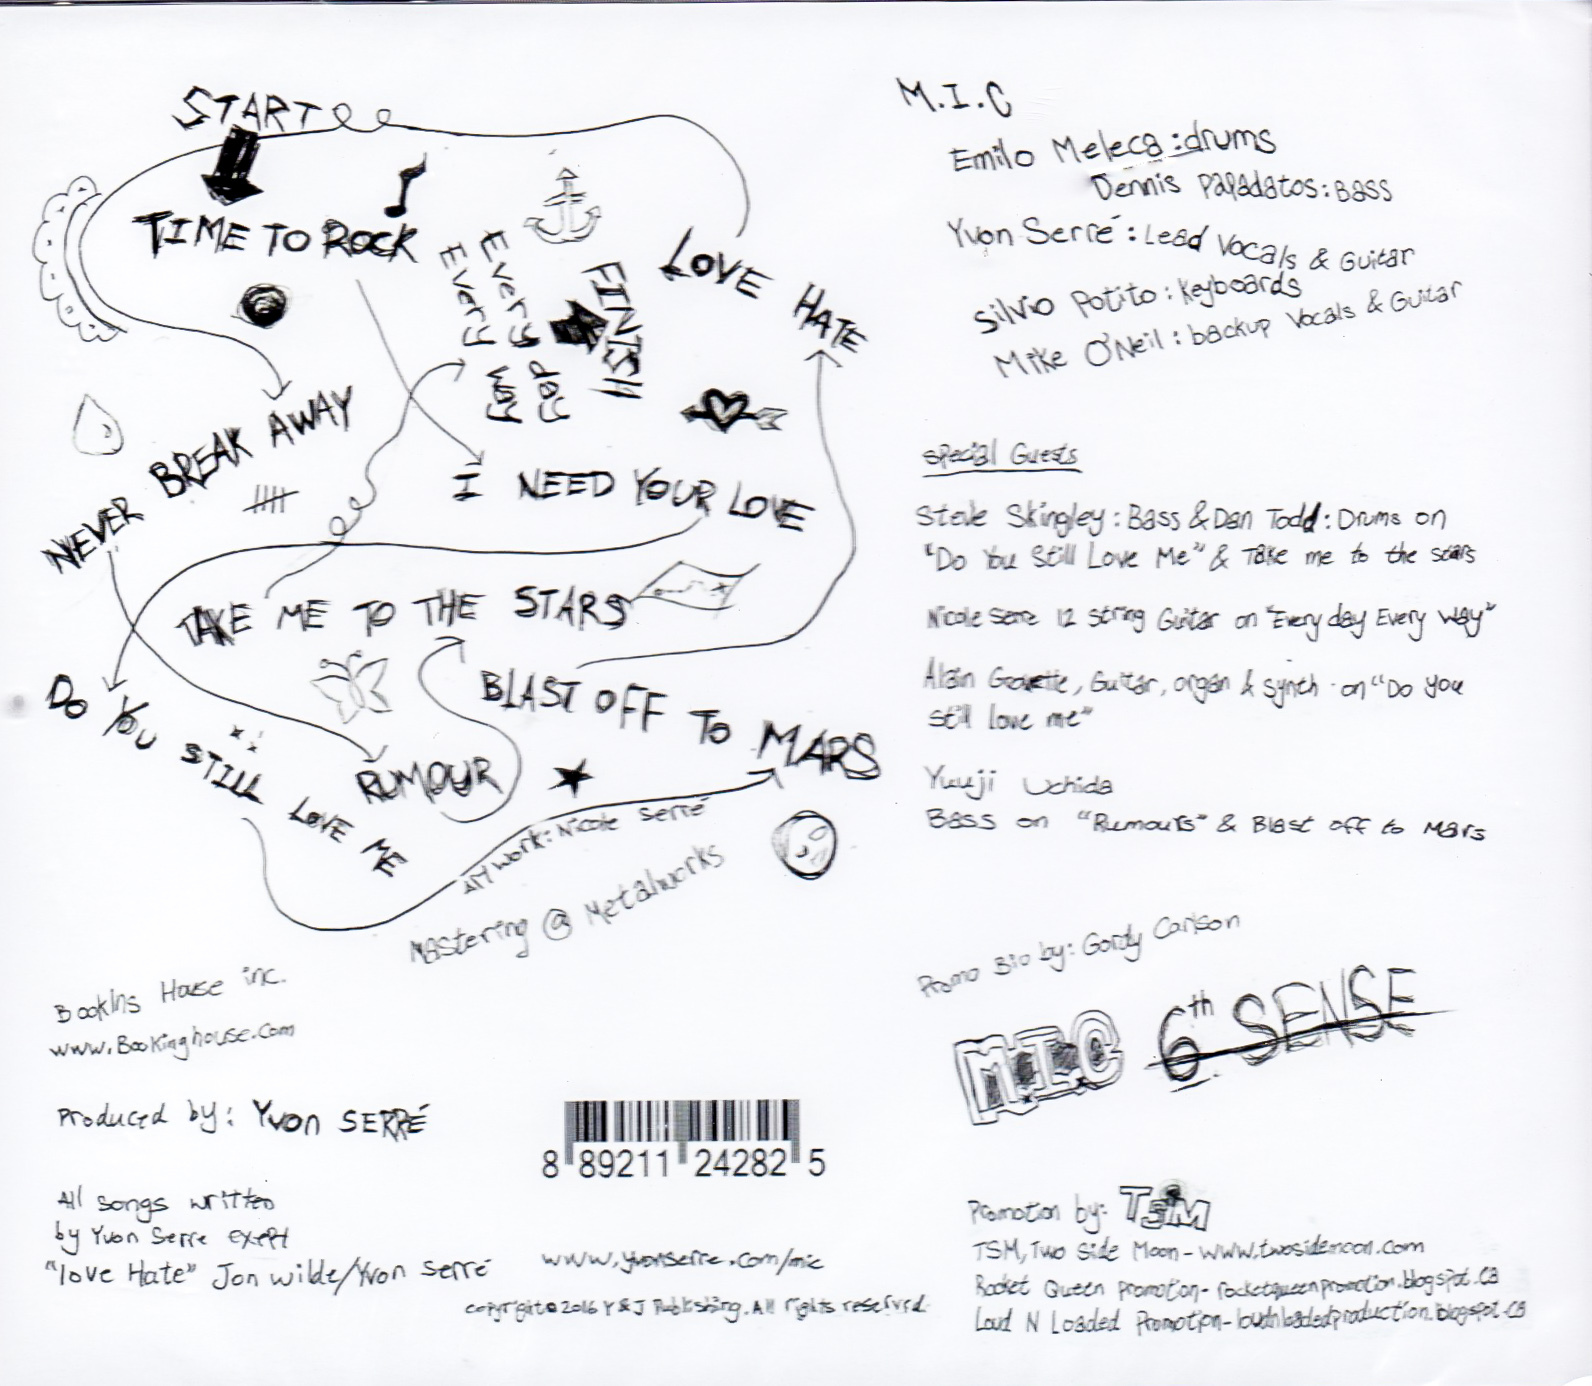 START
TIME TO ROCK
Every day
Every way
FINISH
LOVE HATE
NEVER BREAK AWAY
I NEED YOUR LOVE
TAKE ME TO THE STARS
BLAST OFF TO MARS
DO YOU STILL LOVE ME
RUMOUR
Art work: Nicole Serré
Mastering @ Metalworks
M.I.C
Emilo Meleca: drums
Dennis Papadatos: Bass
Yvon Serré: Lead Vocals & Guitar
Silvio Potito: Keyboards
Mike O'Neil: backup Vocals & Guitar
Special Guests
Steve Skingley: Bass & Dan Todd: Drums on
"Do You Still Love Me" & Take me to the stars
Nicole Serre 12 string Guitar on "Every day Every way"
Alain Guitar, organ & synth on "Do you
still love me"
Yuuji Uchida
Bass on "Rumours" & Blast off to Mars
Promo Bio by: Gordy Carlson
M.I.C 6th SENSE
Bookins House inc.
www.Bookinghouse.com
Produced by: Yvon SERRÉ
All songs written
by Yvon Serre exept
"love Hate" Jon wilde/Yvon Serré
8 89211 24282 5
www.yvonserre.com/mic
copyright © 2016 Y & J Publishing. All rights reserved.
Promotion by: TSM
TSM, Two Side Moon - www.twosidemoon.com
Rocket Queen promotion - rocketqueenpromotion.blogspot.ca
Loud N Loaded Promotion - loudnloadedproduction.blogspot.ca